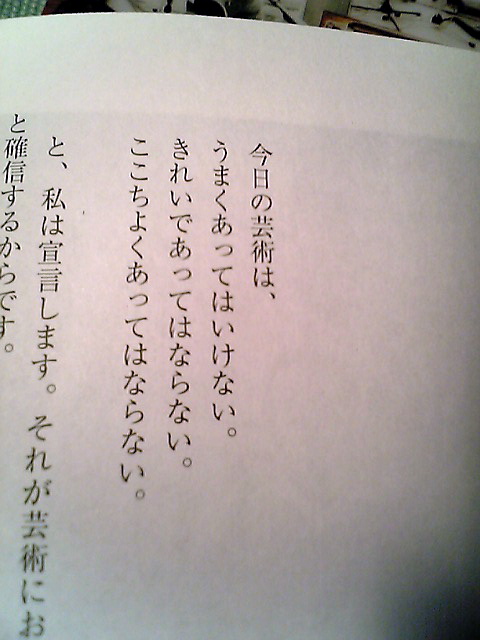 今日の芸術は、
うまくあってはいけない。
きれいであってはならない。
ここちよくあってはならない。
と、私は宣言します。それが芸術にお
と確信するからです。